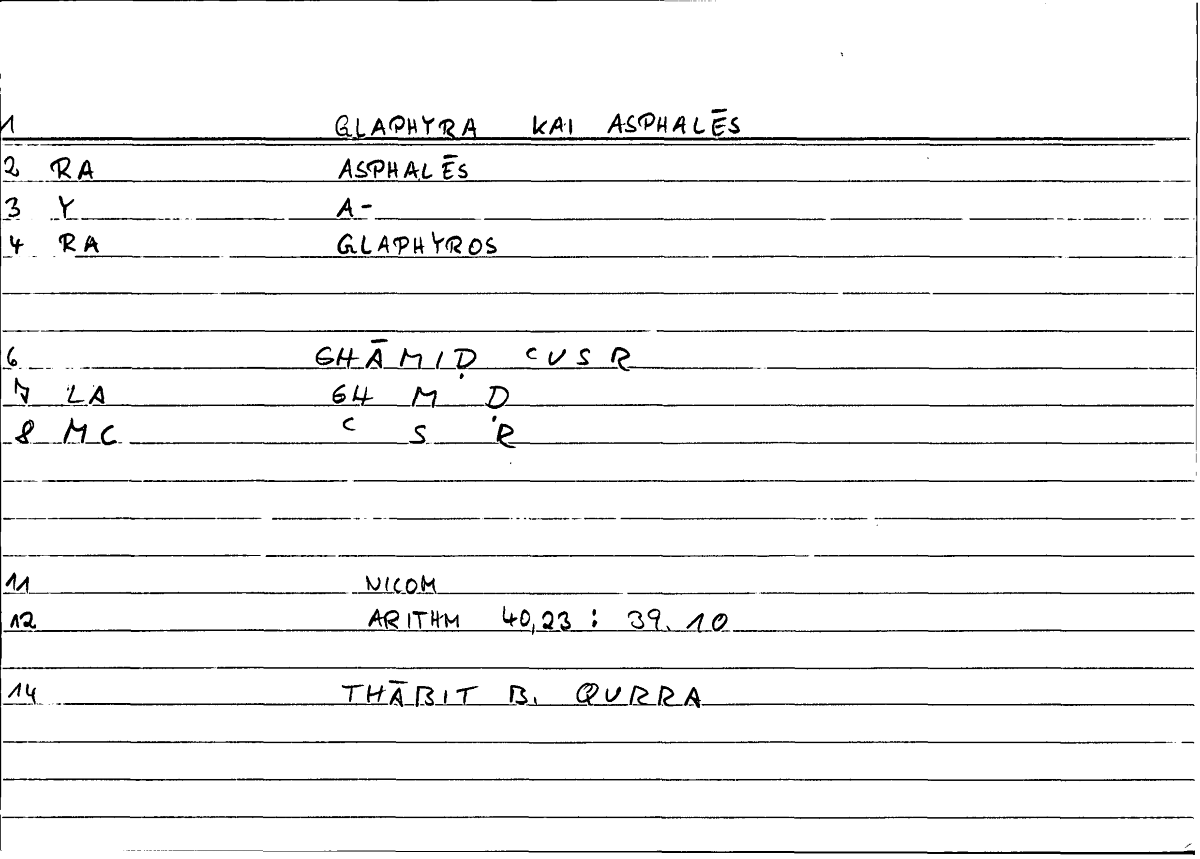 1 GLAPHYRA KAI ASPHALĒS
2 RA ASPHALĒS
3 Y A-
4 RA GLAPHYROS
6 GHĀMIḌ ʿUSR
7 LA GH M Ḍ
8 MC ʿ S R
11 NICOM
12 ARITHM 40,23 : 39.10
14 THĀBIT B. QURRA